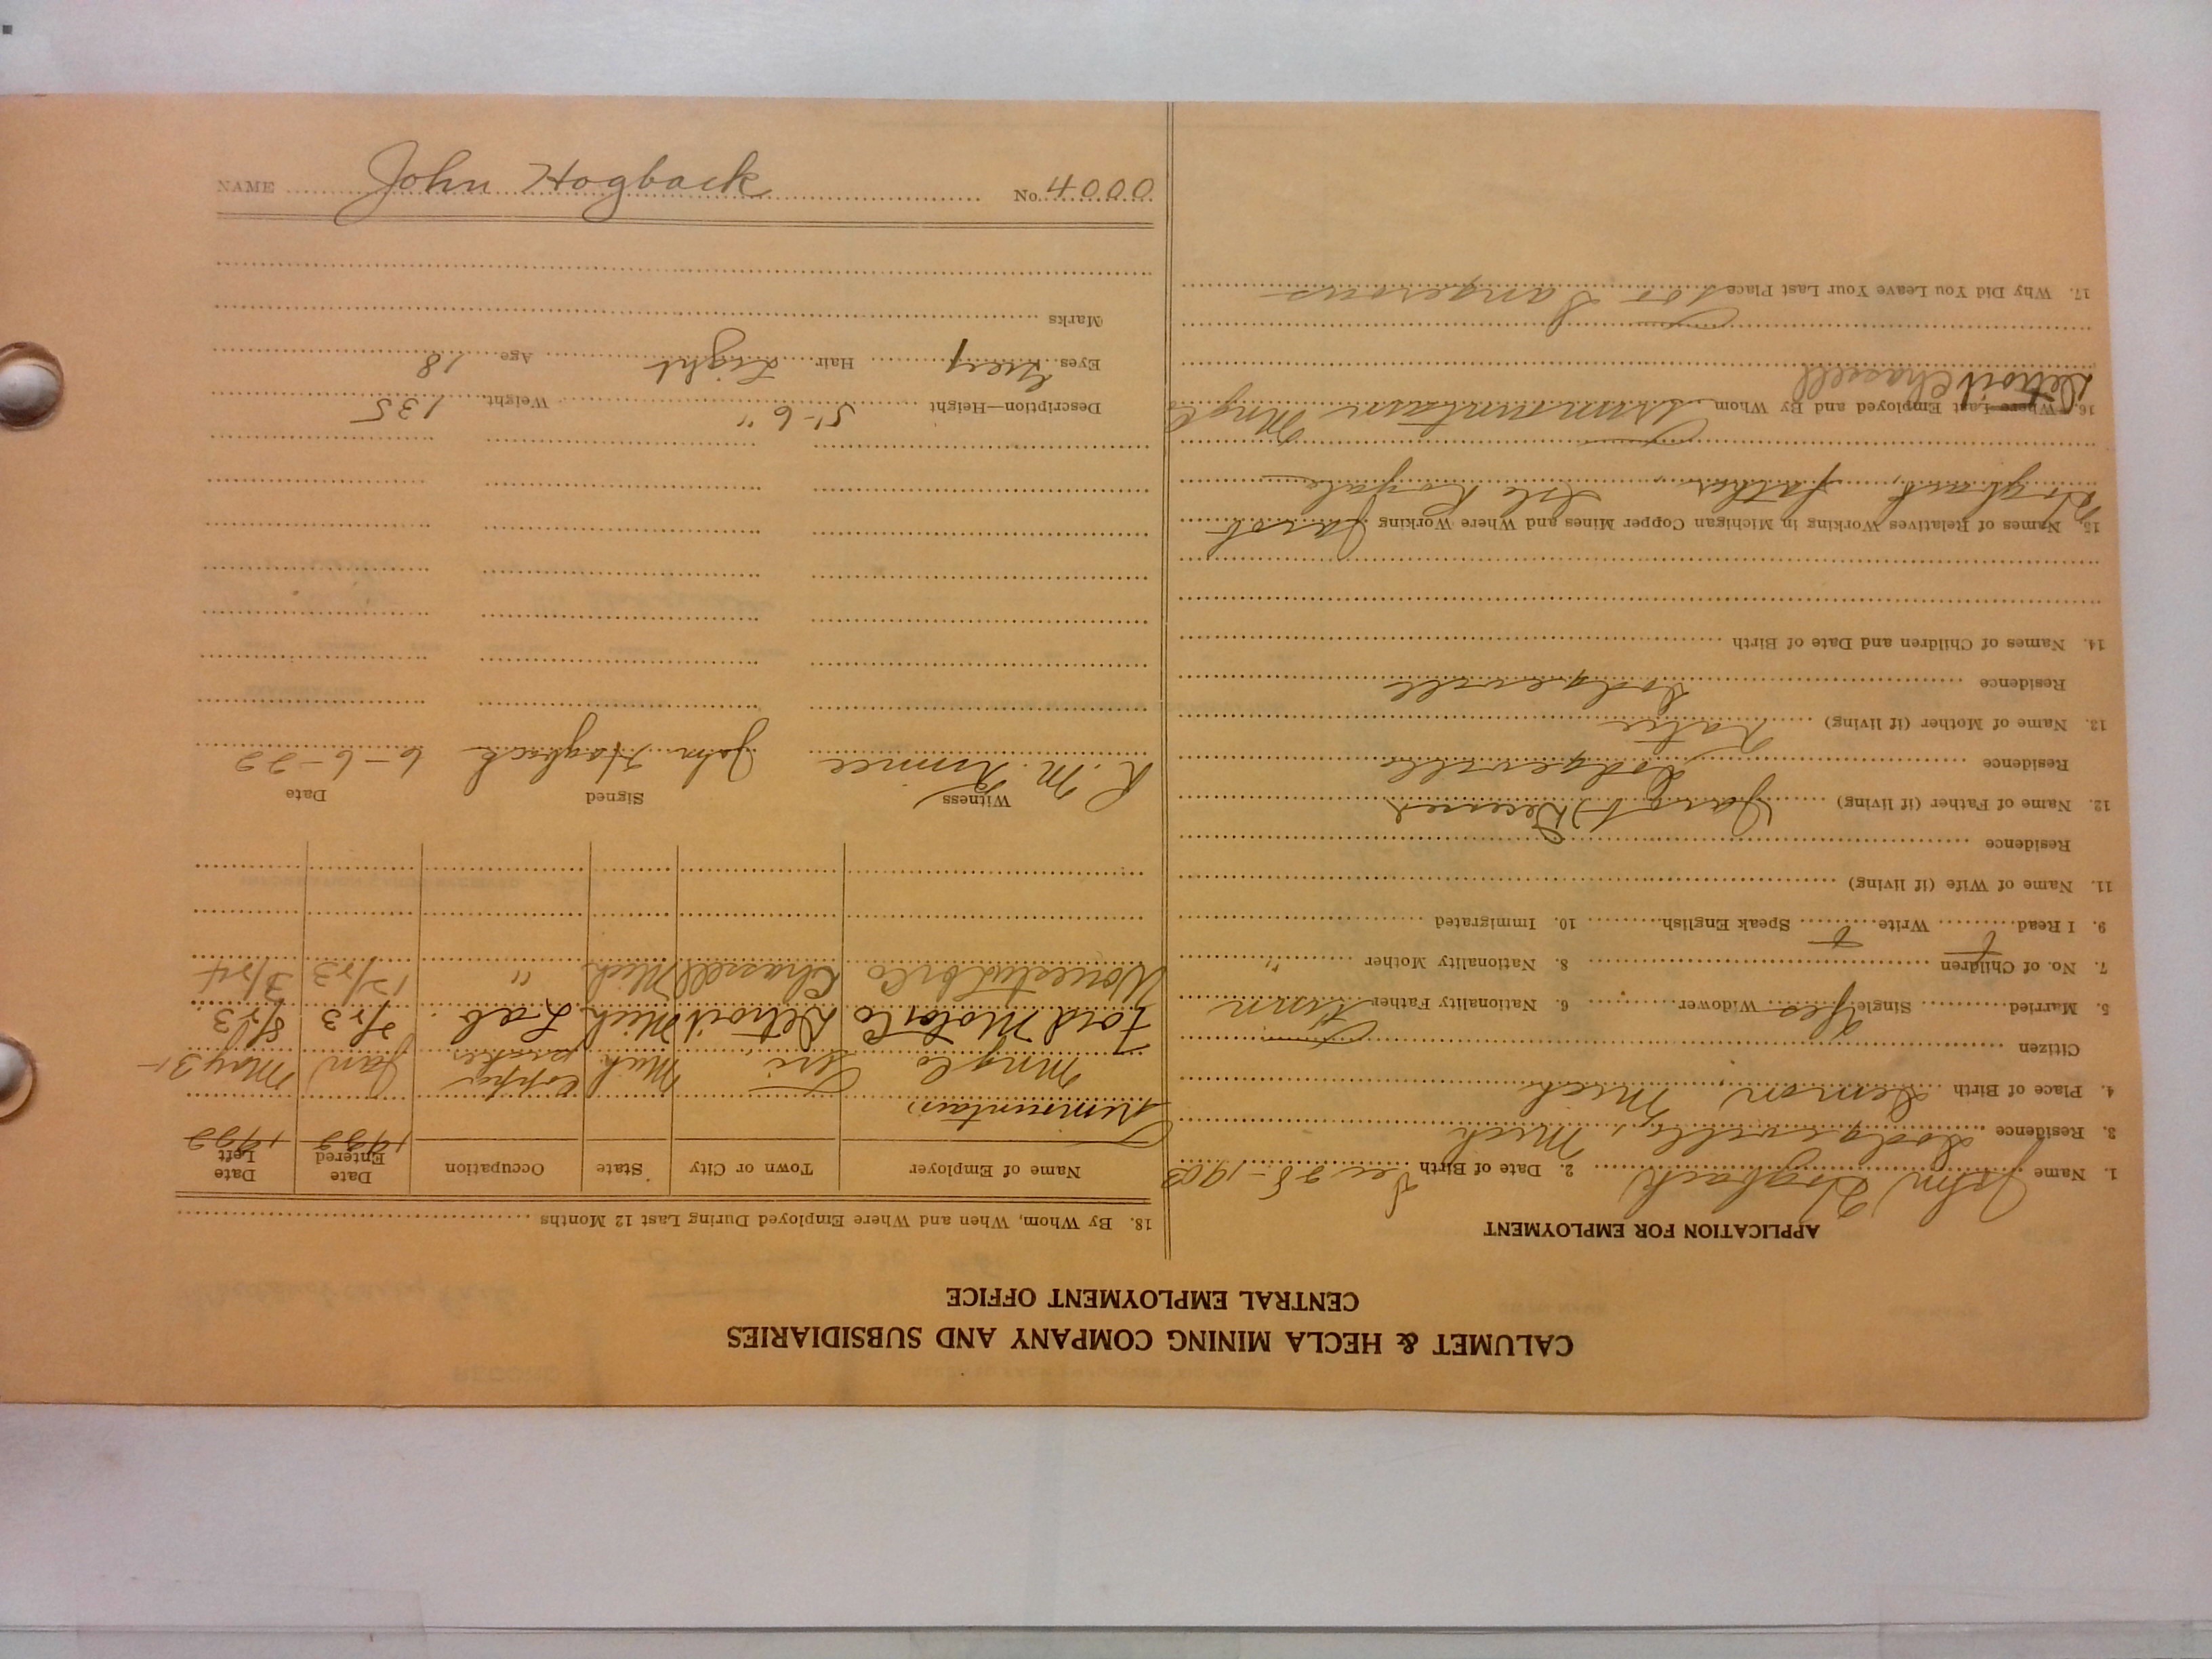 CALUMET & HECLA MINING COMPANY AND SUBSIDIARIES
CENTRAL EMPLOYMENT OFFICE
APPLICATION FOR EMPLOYMENT
1. Name John Hogback 2. Date of Birth Dec 28-1903
3. Residence Dodgeville, Mich
4. Place of Birth Demon, Mich
Citizen
5. Married Single Yes Widower 6. Nationality Father Finn
7. No. of Children 8. Nationality Mother "
9. I Read Write Speak English 10. Immigrated
11. Name of Wife (if living)
Residence
12. Name of Father (if living) Jacob Deceased
Residence Dodgeville
13. Name of Mother (if living) Katie
Residence Dodgeville
14. Names of Children and Date of Birth
15. Names of Relatives Working in Michigan Copper Mines and Where Working Jacob
Hogback, father, Isle Royale
16. Where Last Employed and By Whom Trimountain Mng Co
Detroit Chassell
17. Why Did You Leave Your Last Place Too Dangerous
18. By Whom, When and Where Employed During Last 12 Months
Name of Employer Town or City State Occupation Date Entered Date Left
1922 1922
Trimountain
Mng Co Tri Mich Copper picker Jan May 31
Ford Motor Co Detroit Mich Lab. 2/23 8/23
Worcester Lbr Co Chassell Mich " 12/23 3/24
Witness Signed Date
R. M. John Hogback 6-6-22
Description—Height 5'-6" Weight 135
Eyes Grey Hair Light Age 18
Marks
NAME John Hogback No. 4000